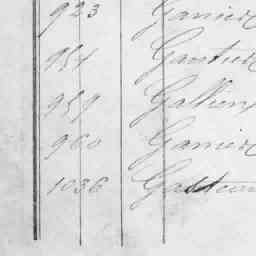 923 Garnier
954 Gautier
959 Gallien
960 Garnier
1036